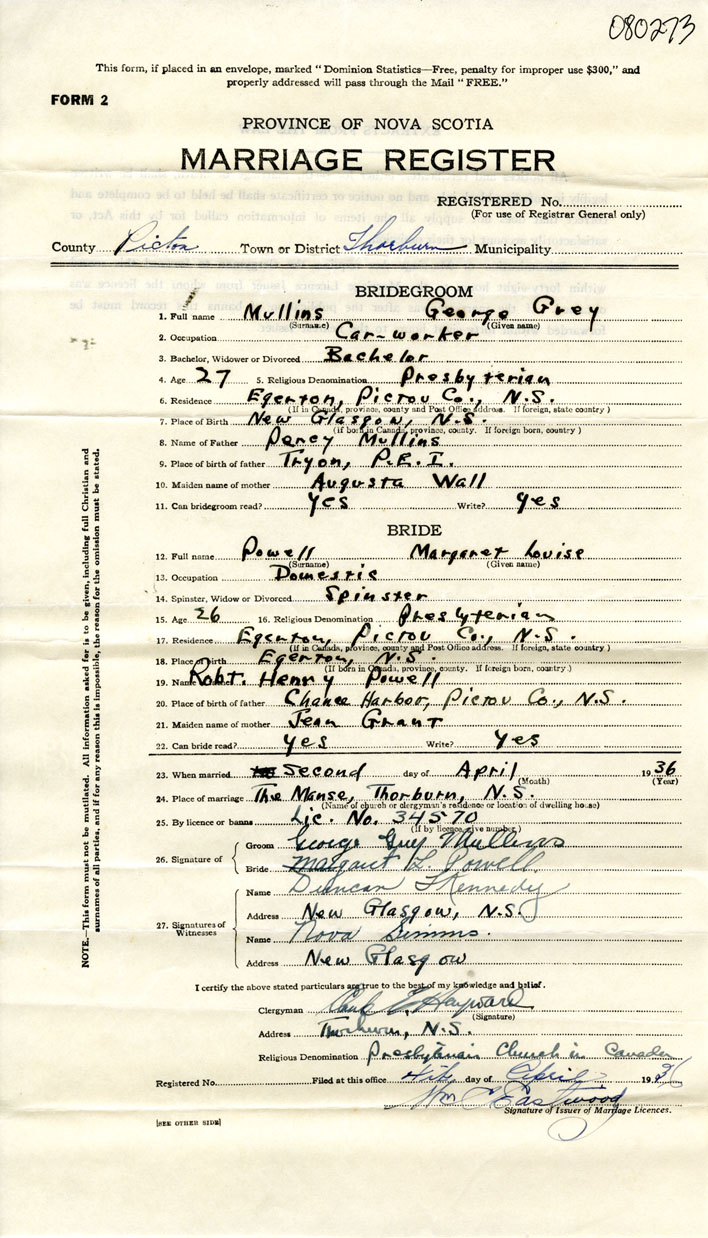 080273
This form, if placed in an envelope, marked "Dominion Statistics—Free, penalty for improper use $300," and
properly addressed will pass through the Mail "FREE."
FORM 2
PROVINCE OF NOVA SCOTIA
MARRIAGE REGISTER
REGISTERED No.
(For use of Registrar General only)
County Pictou Town or District Thorburn Municipality
BRIDEGROOM
1. Full name Mullins George Grey
(Surname) (Given name)
2. Occupation Car-worker
3. Bachelor, Widower or Divorced Bachelor
4. Age 27 5. Religious Denomination Presbyterian
6. Residence Egerton, Pictou Co., N.S.
(If in Canada, province, county and Post Office address. If foreign, state country)
7. Place of Birth New Glasgow, N.S.
(if born in Canada, province, county. If foreign born, country)
8. Name of Father Percy Mullins
9. Place of birth of father Tryon, P.E.I.
10. Maiden name of mother Augusta Wall
11. Can bridegroom read? Yes Write? Yes
BRIDE
12. Full name Powell Margaret Louise
(Surname) (Given name)
13. Occupation Domestic
14. Spinster, Widow or Divorced Spinster
15. Age 26 16. Religious Denomination Presbyterian
17. Residence Egerton, Pictou Co., N.S.
(If in Canada, province, county and Post Office address. If foreign, state country)
18. Place of Birth Egerton, N.S.
(If born in Canada, province, county. If foreign born, country.)
19. Name Robt. Henry Powell
20. Place of birth of father Chance Harbor, Pictou Co., N.S.
21. Maiden name of mother Jean Grant
22. Can bride read? Yes Write? Yes
23. When married Second day of April 1936
(Month) (Year)
24. Place of marriage The Manse, Thorburn, N.S.
(Name of church or clergyman's residence or location of dwelling house)
25. By licence or banns Lic. No. 34570
(If by licence give number)
26. Signature of Groom George Grey Mullins
Bride Margaret L. Powell
27. Signatures of Witnesses
Name Duncan Kennedy
Address New Glasgow, N.S.
Name Nova Simms.
Address New Glasgow
I certify the above stated particulars are true to the best of my knowledge and belief.
Clergyman Hayward
(Signature)
Address Thorburn, N.S.
Religious Denomination Presbyterian Church in Canada
Registered No. Filed at this office 4th day of April 1936
Wm Eastwood
Signature of Issuer of Marriage Licences.
[SEE OTHER SIDE]
NOTE.—This form must not be mutilated. All information asked for is to be given, including full Christian and
surnames of all parties, and if for any reason this is impossible, the reason for the omission must be stated.